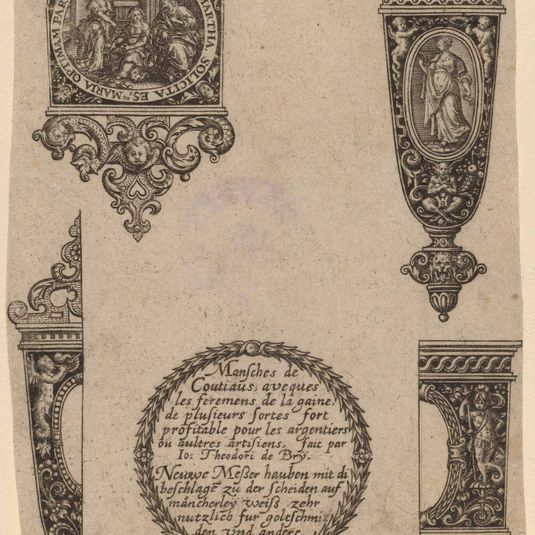 MARTHA SOLICITA ES, MARIA OPTIMAM PAR
Mansches de
Coutiaus, aveques
les feremens de la gaine,
de plusieurs sortes fort
profitable pour les argentiers
ou aultres artisiens, fait par
Io: Theodori de Bry.
Neuwe Messer hauben mit di
beschlage zu der scheiden auf
mancherley weiss zehr
nutzlich fur goltschmi
den vnd andere